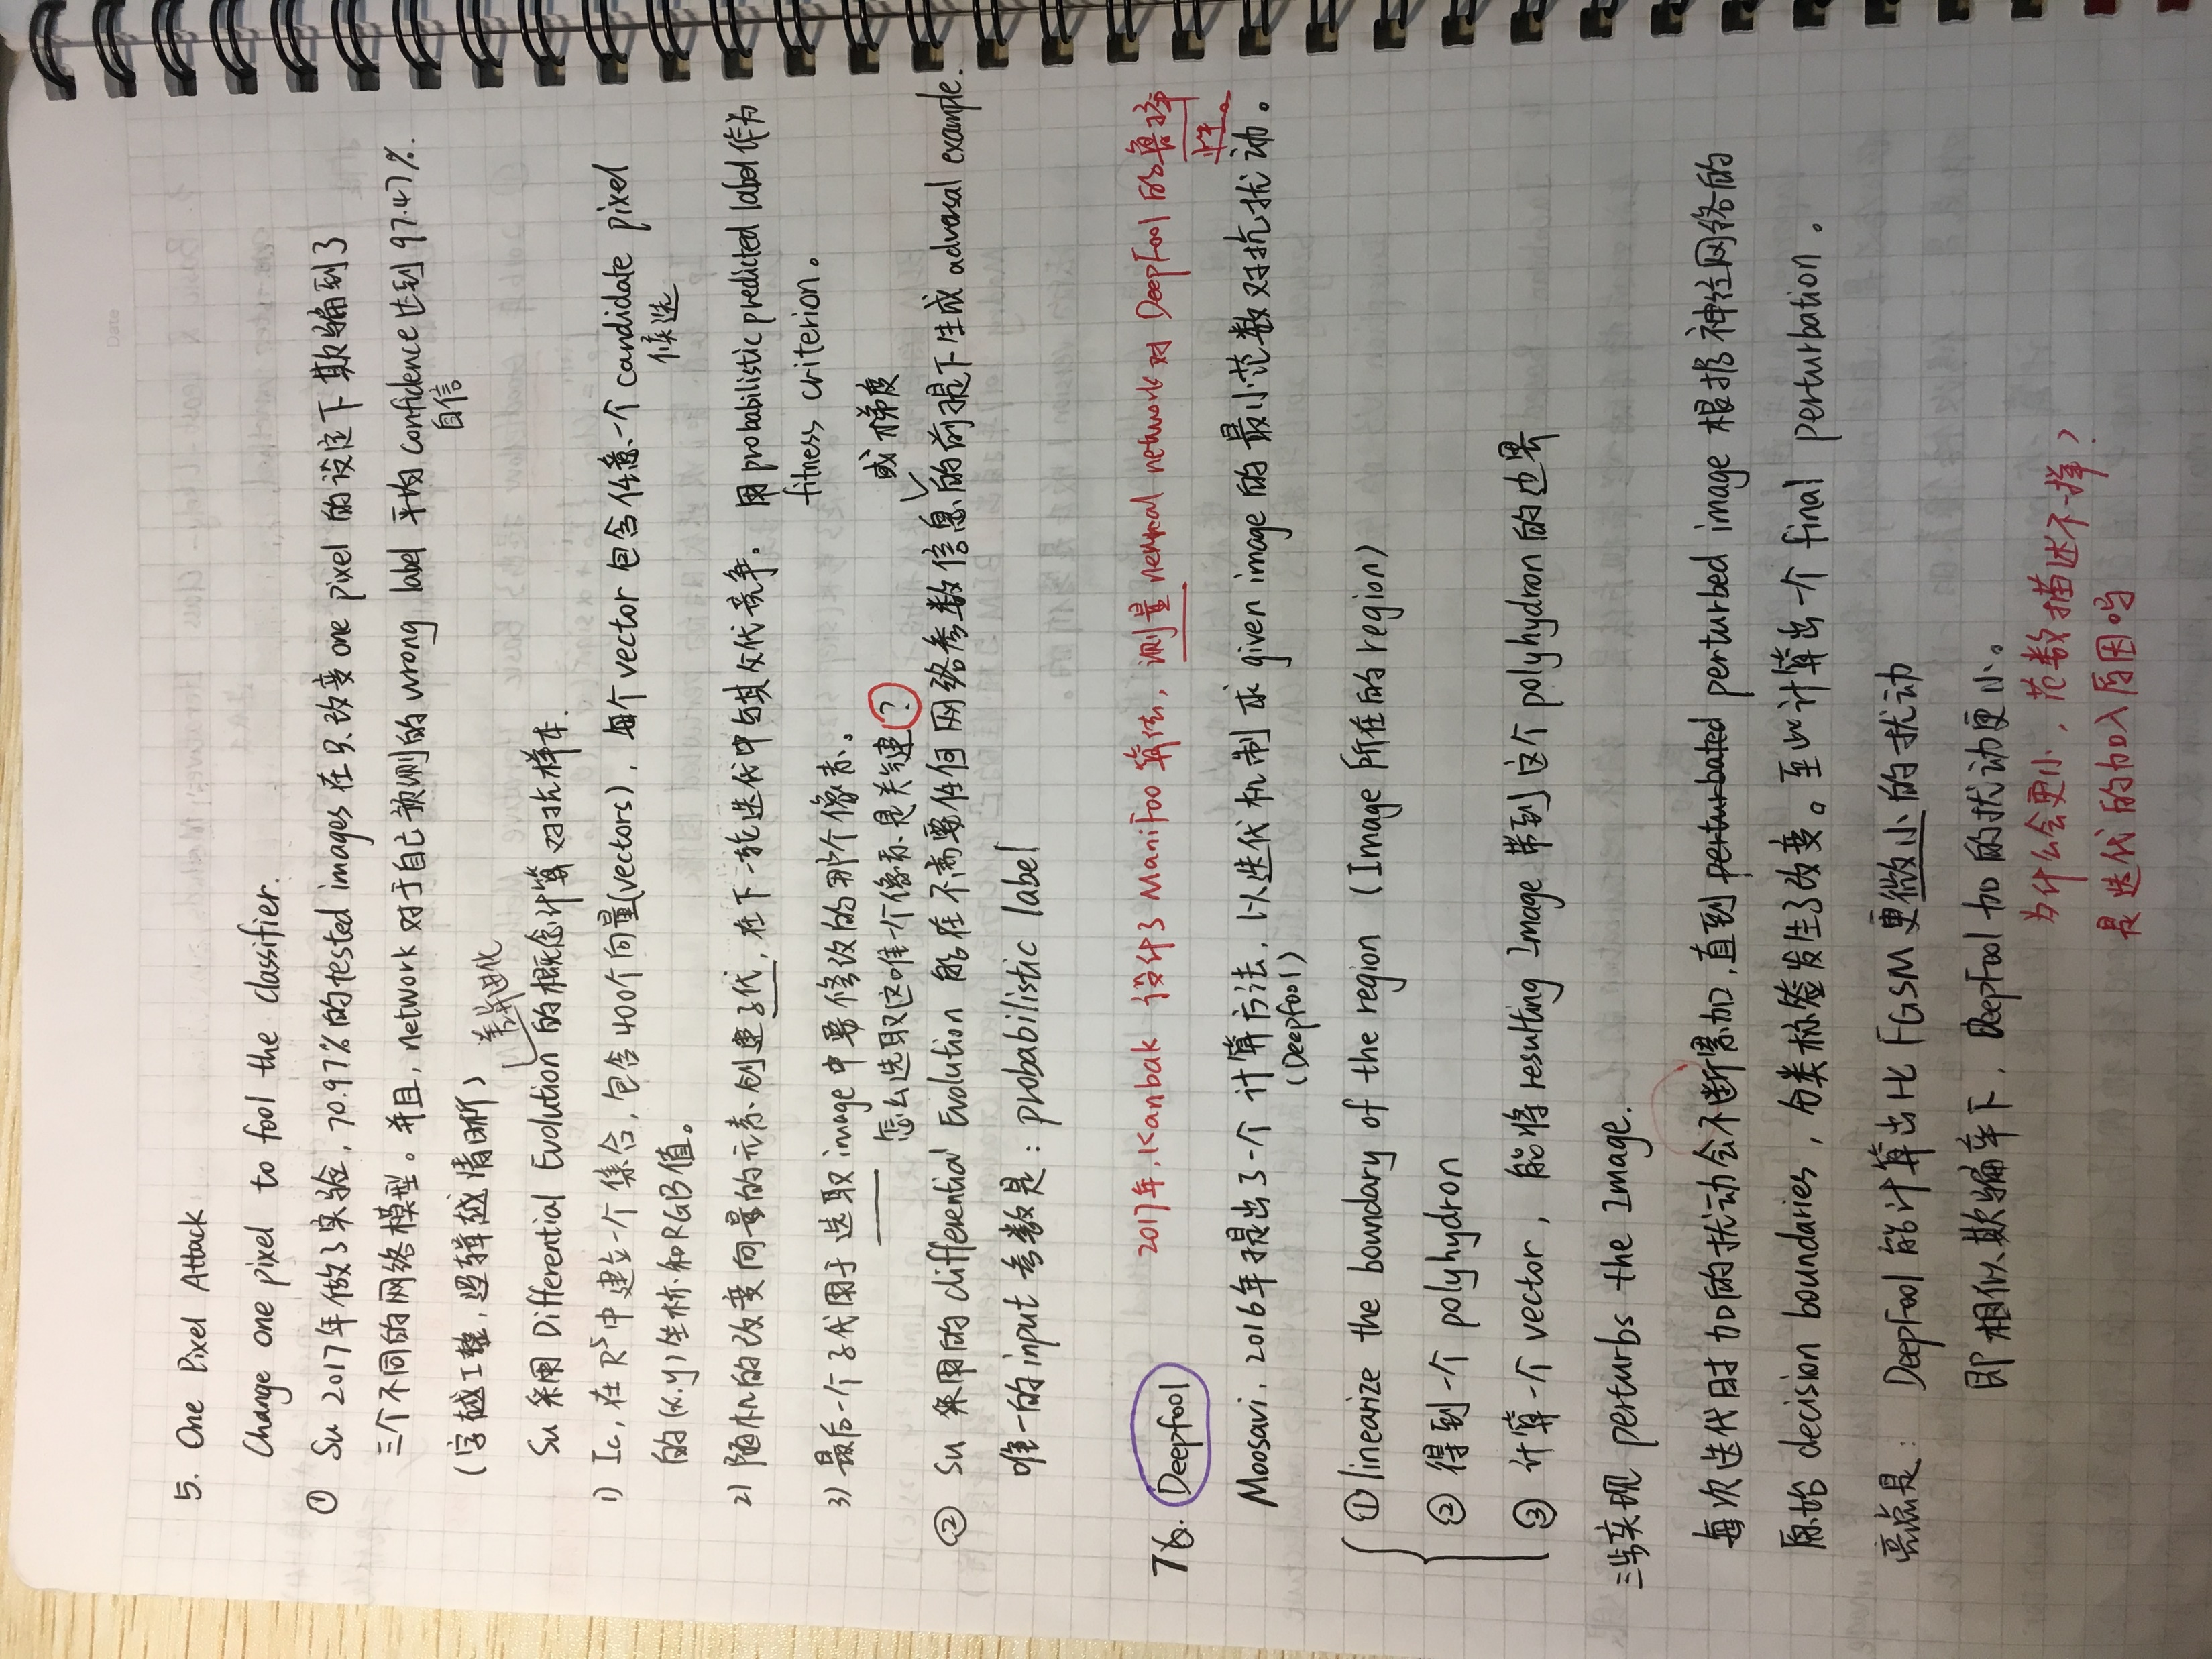 5. One Pixel Attack
Change one pixel to fool the classifier.
① Su 2017年做了实验, 70.97%的tested images 在只改变 one pixel 的设定下欺骗到了
三个不同的网络模型。并且, network 对于自己预测的 wrong label 平均 confidence 达到 97.47%.
自信
(字越工整, 逻辑越清晰)
差异进化
Su 采用 Differential Evolution 的概念计算对抗样本.
1) Ic, 在 R⁵ 中建立一个集合, 包含 400个向量(vectors), 每个 vector 包含任意一个 candidate pixel
候选
的 (x.y) 坐标和RGB值。
2) 随机的改变向量的元素,创建子代, 在下一轮迭代中与其父代竞争. 用 probabilistic predicted label 作为
fitness criterion。
3) 最后一个子代用于选取 image 中要修改的那个像素。
怎么选取这唯一个像素是关键?
或梯度
② Su 采用的 differential Evolution 能在不需要任何网络参数信息的前提下生成 advarsal example.
唯一的 input 参数是: probabilistic label
2017年, Kanbak 设计了 Manifoo 算法, 测量 neural network 对 DeepFool 的鲁棒
性。
76. Deepfool
Moosavi. 2016年提出了一个计算方法, 以迭代机制求 given image 的最小范数对抗扰动。
(Deepfool)
① linearize the boundary of the region (Image 所在的 region)
② 得到一个 polyhydron
③ 计算一个 vector, 能将 resulting Image 带到这个 polyhydron 的边界
三步实现 perturbs the Image.
每次迭代时加的扰动会不断累加, 直到 perturbated perturbed image 根据神经网络的
原始 decision boundaries, 分类标签发生了改变。至此计算出一个 final perturbation.
亮点是: DeepFool 能计算出比 FGSM 更微小的扰动
即相似欺骗率下, DeepFool 加的扰动更小。
为什么会更小, 范数描述不一样?
是迭代的加入原因吗